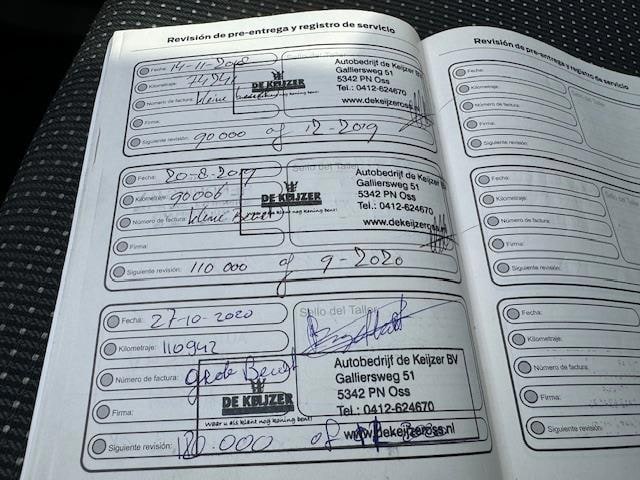 Revisión de pre-entrega y registro de servicio
Fecha: 14-11-2018
Kilometraje: 74241
Número de factura: kleine
Firma:
Siguiente revisión: 90 000 of 12-2019
DE KEIJZER
Autobedrijf de Keijzer BV
Galliersweg 51
5342 PN Oss
Tel.: 0412-624670
www.dekeijzeross.nl
Fecha: 20-8-2019
Kilometraje: 90006
Número de factura: kleine Beurt
Firma:
Siguiente revisión: 110 000 of 9-2020
Sello del Taller
DE KEIJZER
Waar u als klant nog koning bent!
Autobedrijf de Keijzer B
Galliersweg 51
5342 PN Oss
Tel.: 0412-624670
www.dekeijzeross.nl
Fecha: 27-10-2020
Kilometraje: 110942
Número de factura: grote Beurt
Firma:
Siguiente revisión: 000 of
Sello del Taller
DE KEIJZER
Waar u als klant nog koning bent!
Autobedrijf de Keijzer BV
Galliersweg 51
5342 PN Oss
Tel.: 0412-624670
www.dekeijzeross.nl
Revisión de pre-entrega y registro de servicio
Fecha:
Kilometraje:
Número de factura:
Firma:
Siguiente revisión:
Fecha:
Kilometraje:
Número de factura:
Firma:
Siguiente revisión:
Fecha:
Kilometraje:
Número de factura:
Firma:
Siguiente revisión: